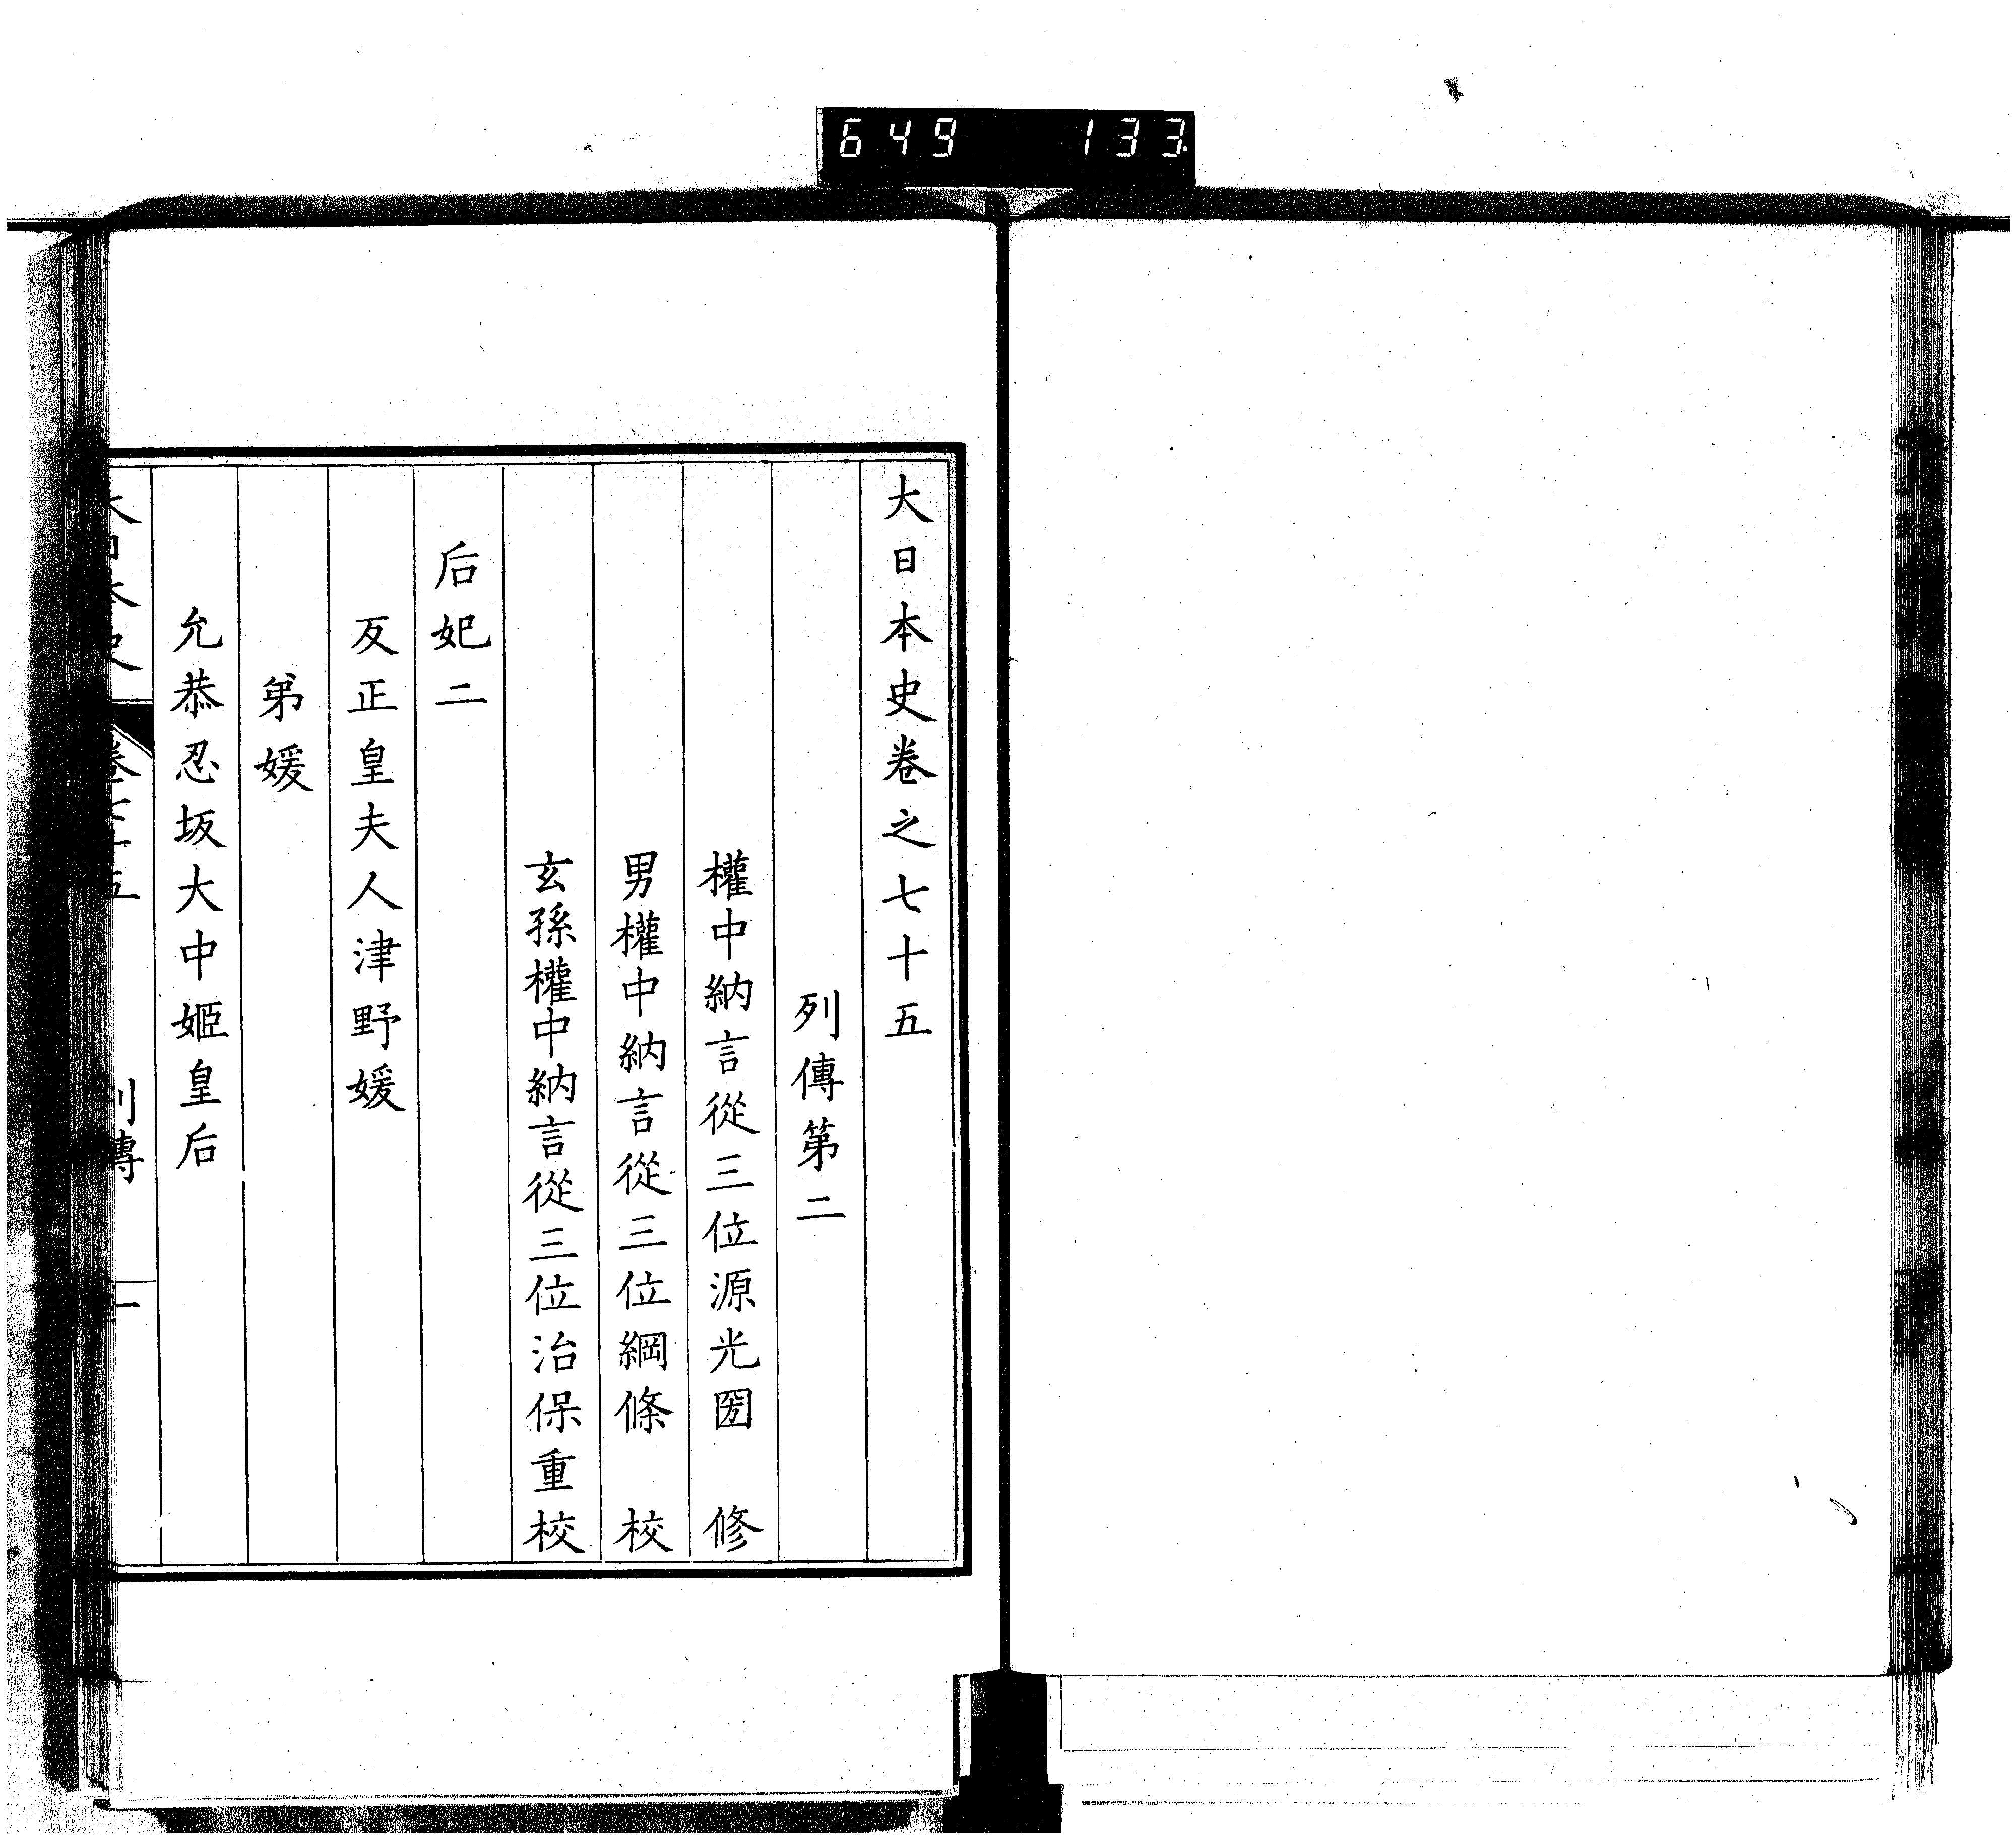 649 133
大日本史卷之七十五
列傳第二
權中納言從三位源光圀 修
男權中納言從三位綱條 校
玄孫權中納言從三位治保重校
后妃二
反正皇夫人津野媛
弟媛
允恭忍坂大中姬皇后
大日本史 卷七十五 列傳 一